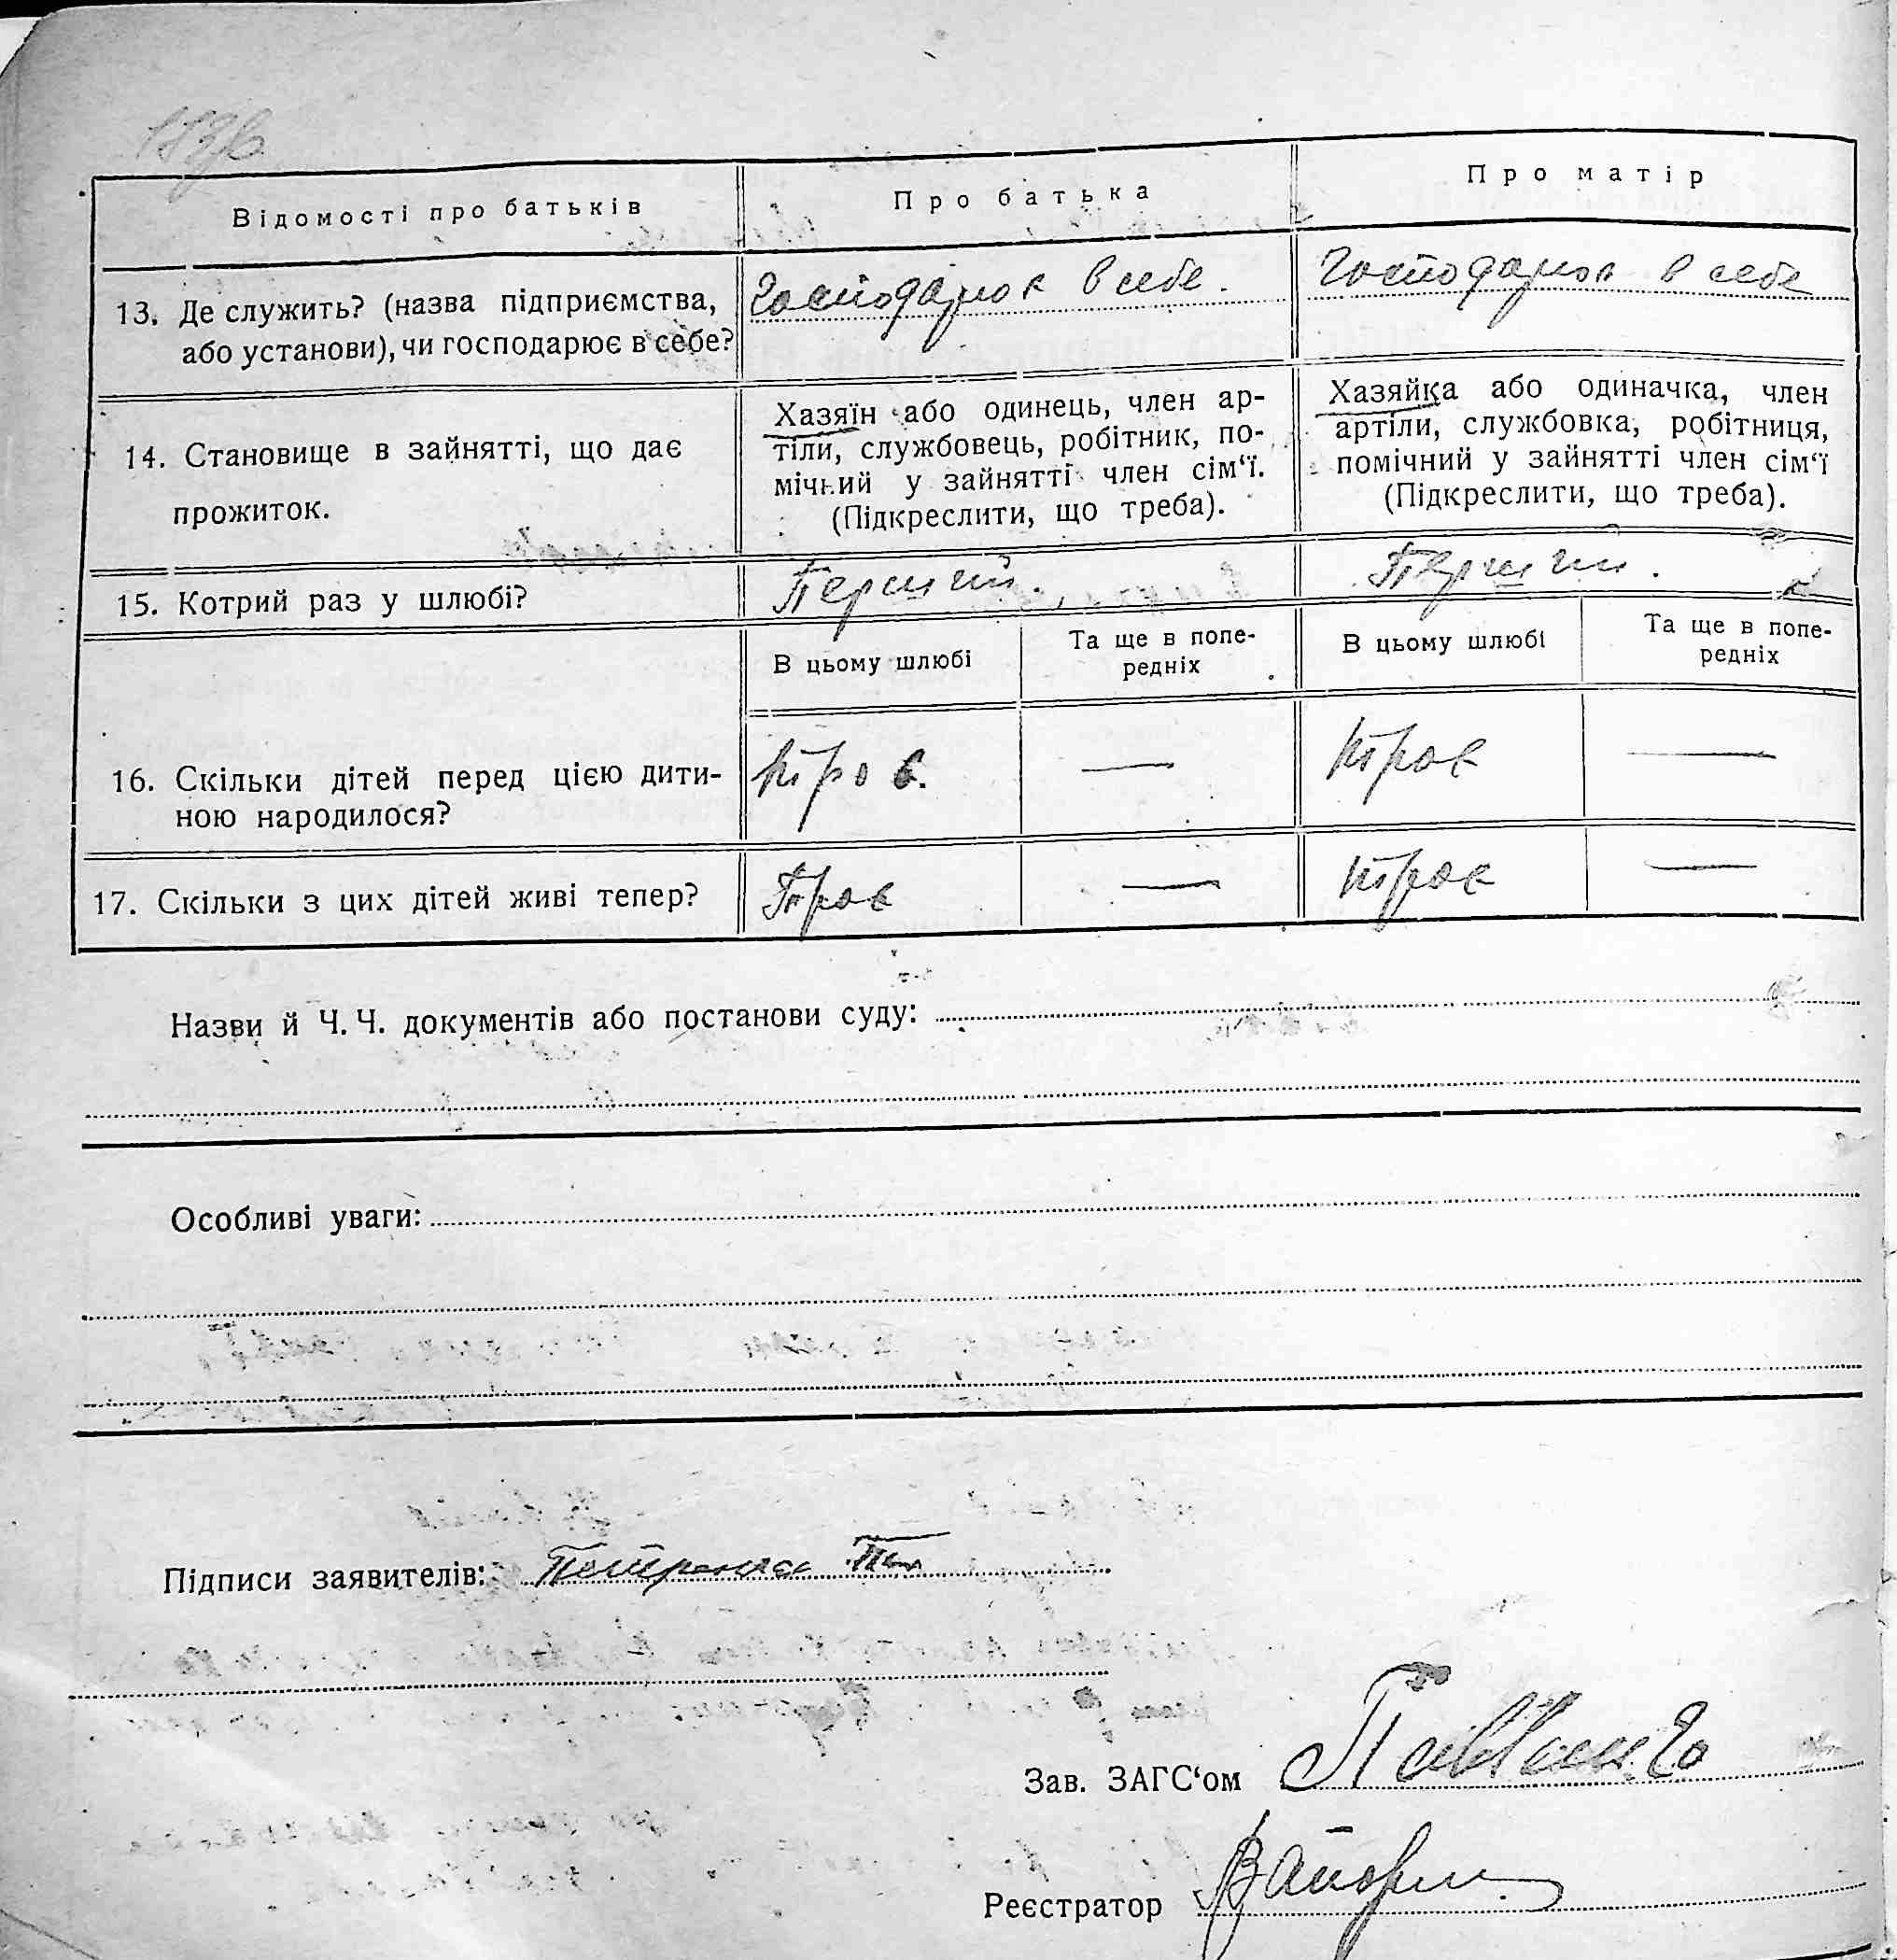 Відомості про батьків Про батька Про матір
13. Де служить? (назва підприємства, або установи), чи господарює в себе?
Господарює в себе. Господарює в себе
14. Становище в зайнятті, що дає прожиток.
Хазяїн або одинець, член ар-
тіли, службовець, робітник, по-
мічний у зайнятті член сім‘ї.
(Підкреслити, що треба).
Хазяйка або одиначка, член
артіли, службовка, робітниця,
помічний у зайнятті член сім‘ї
(Підкреслити, що треба).
15. Котрий раз у шлюбі? Перший. Перший.
В цьому шлюбі
Та ще в попе-
редніх
В цьому шлюбі
Та ще в попе-
редніх
16. Скільки дітей перед цією дити-
ною народилося?
троє. — троє —
17. Скільки з цих дітей живі тепер? Троє — троє —
Назви й Ч. Ч. документів або постанови суду:
Особливі уваги:
Підписи заявителів:
Зав. ЗАГС‘ом
Реєстратор